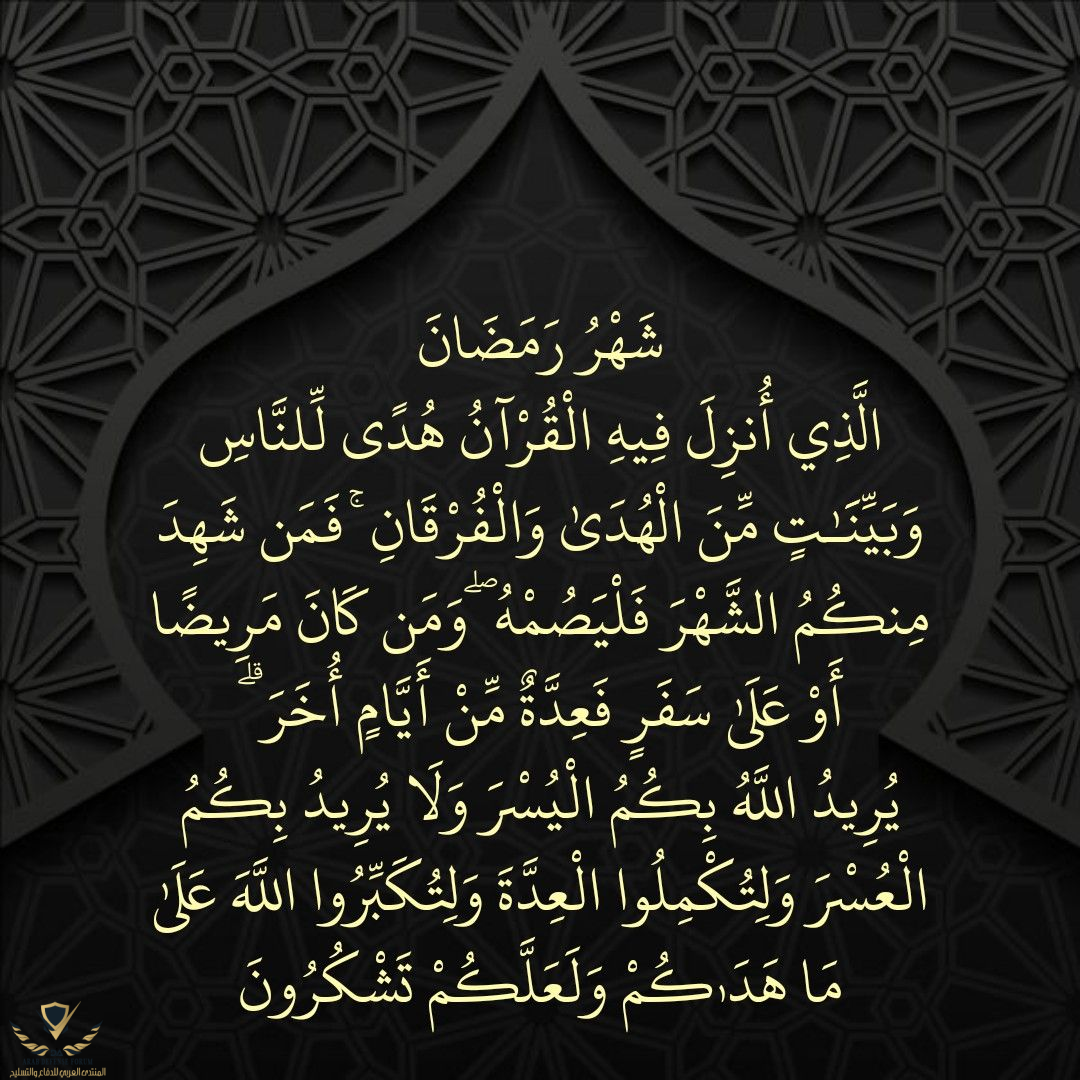 شَهْرُ رَمَضَانَ
الَّذِي أُنزِلَ فِيهِ الْقُرْآنُ هُدًى لِّلنَّاسِ
وَبَيِّنَـٰتٍ مِّنَ الْهُدَىٰ وَالْفُرْقَانِ ۚ فَمَن شَهِدَ
مِنكُمُ الشَّهْرَ فَلْيَصُمْهُ ۖ وَمَن كَانَ مَرِيضًا
أَوْ عَلَىٰ سَفَرٍ فَعِدَّةٌ مِّنْ أَيَّامٍ أُخَرَ ۗ
يُرِيدُ اللَّهُ بِكُمُ الْيُسْرَ وَلَا يُرِيدُ بِكُمُ
الْعُسْرَ وَلِتُكْمِلُوا الْعِدَّةَ وَلِتُكَبِّرُوا اللَّهَ عَلَىٰ
مَا هَدَىٰكُمْ وَلَعَلَّكُمْ تَشْكُرُونَ
المنتدى العربي للدفاع والتسليح